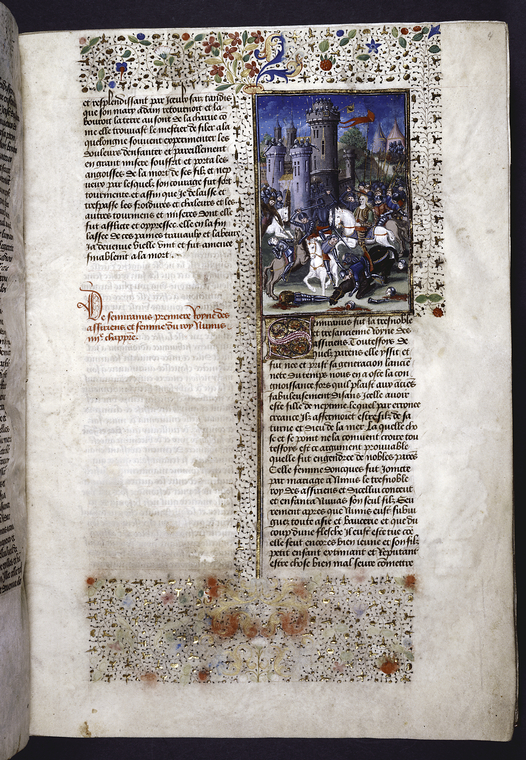 4
et resplendissant par jeulx san tandis
que son mary adam retournoit et la
bouroit la terre au font de la charue co
me elle trouvast le mestier de filer a la
quelongne souvent experimenter les
douleurs denfanter et pareillement
en grant misere souffrit et porta les
angoisses de la mort de ses filz et nep
ueux par lesquelz son courage fut fort
tourmente et affin que je delaisse et
trespasse les froidures et chaleurs et les
autres tourmens et miseres dont elle
fut afflicte et oppressee elle en la fin
lassee de ces paines travaulx et labeur
Ja devenue vielle vint et fut amenee
finablement a la mort .
De semiramis premiere royne des
assiriens et femme du roy Ninus
iiije chappitre .
Semiramis fut la tresnoble
et tresancienne royne des
assiriens Toutesfois de
quelz parens elle yssit et
fut nee et prist sa generacion lancie
nete du temps nous en a oste la con
gnoissance fors quil plaist aux aucies
fabuleusement disans jcelle avoir
este fille de neptune lequel par erronee
creance jlz affermoient estre filz de sa
turne et dieu de la mer La quelle cho
se et se point ne la convient croire tou
tesfois est ce argument prouvable
quelle fut engendree de nobles parēs
Celle femme doncques fut joincte
par mariage a Ninus le tresnoble
roy des assiriens et dicellui conceut
et enfanta Ninias son seul filz Seu
rement apres que Ninus eust subiu
gue toute asie et bauterie et que du
coup dune flesche jl eust este tue ceste
elle seut encores bien jeune et son filz
petit enfant extimant et reputant
estre chose bien mal seure cōmettre